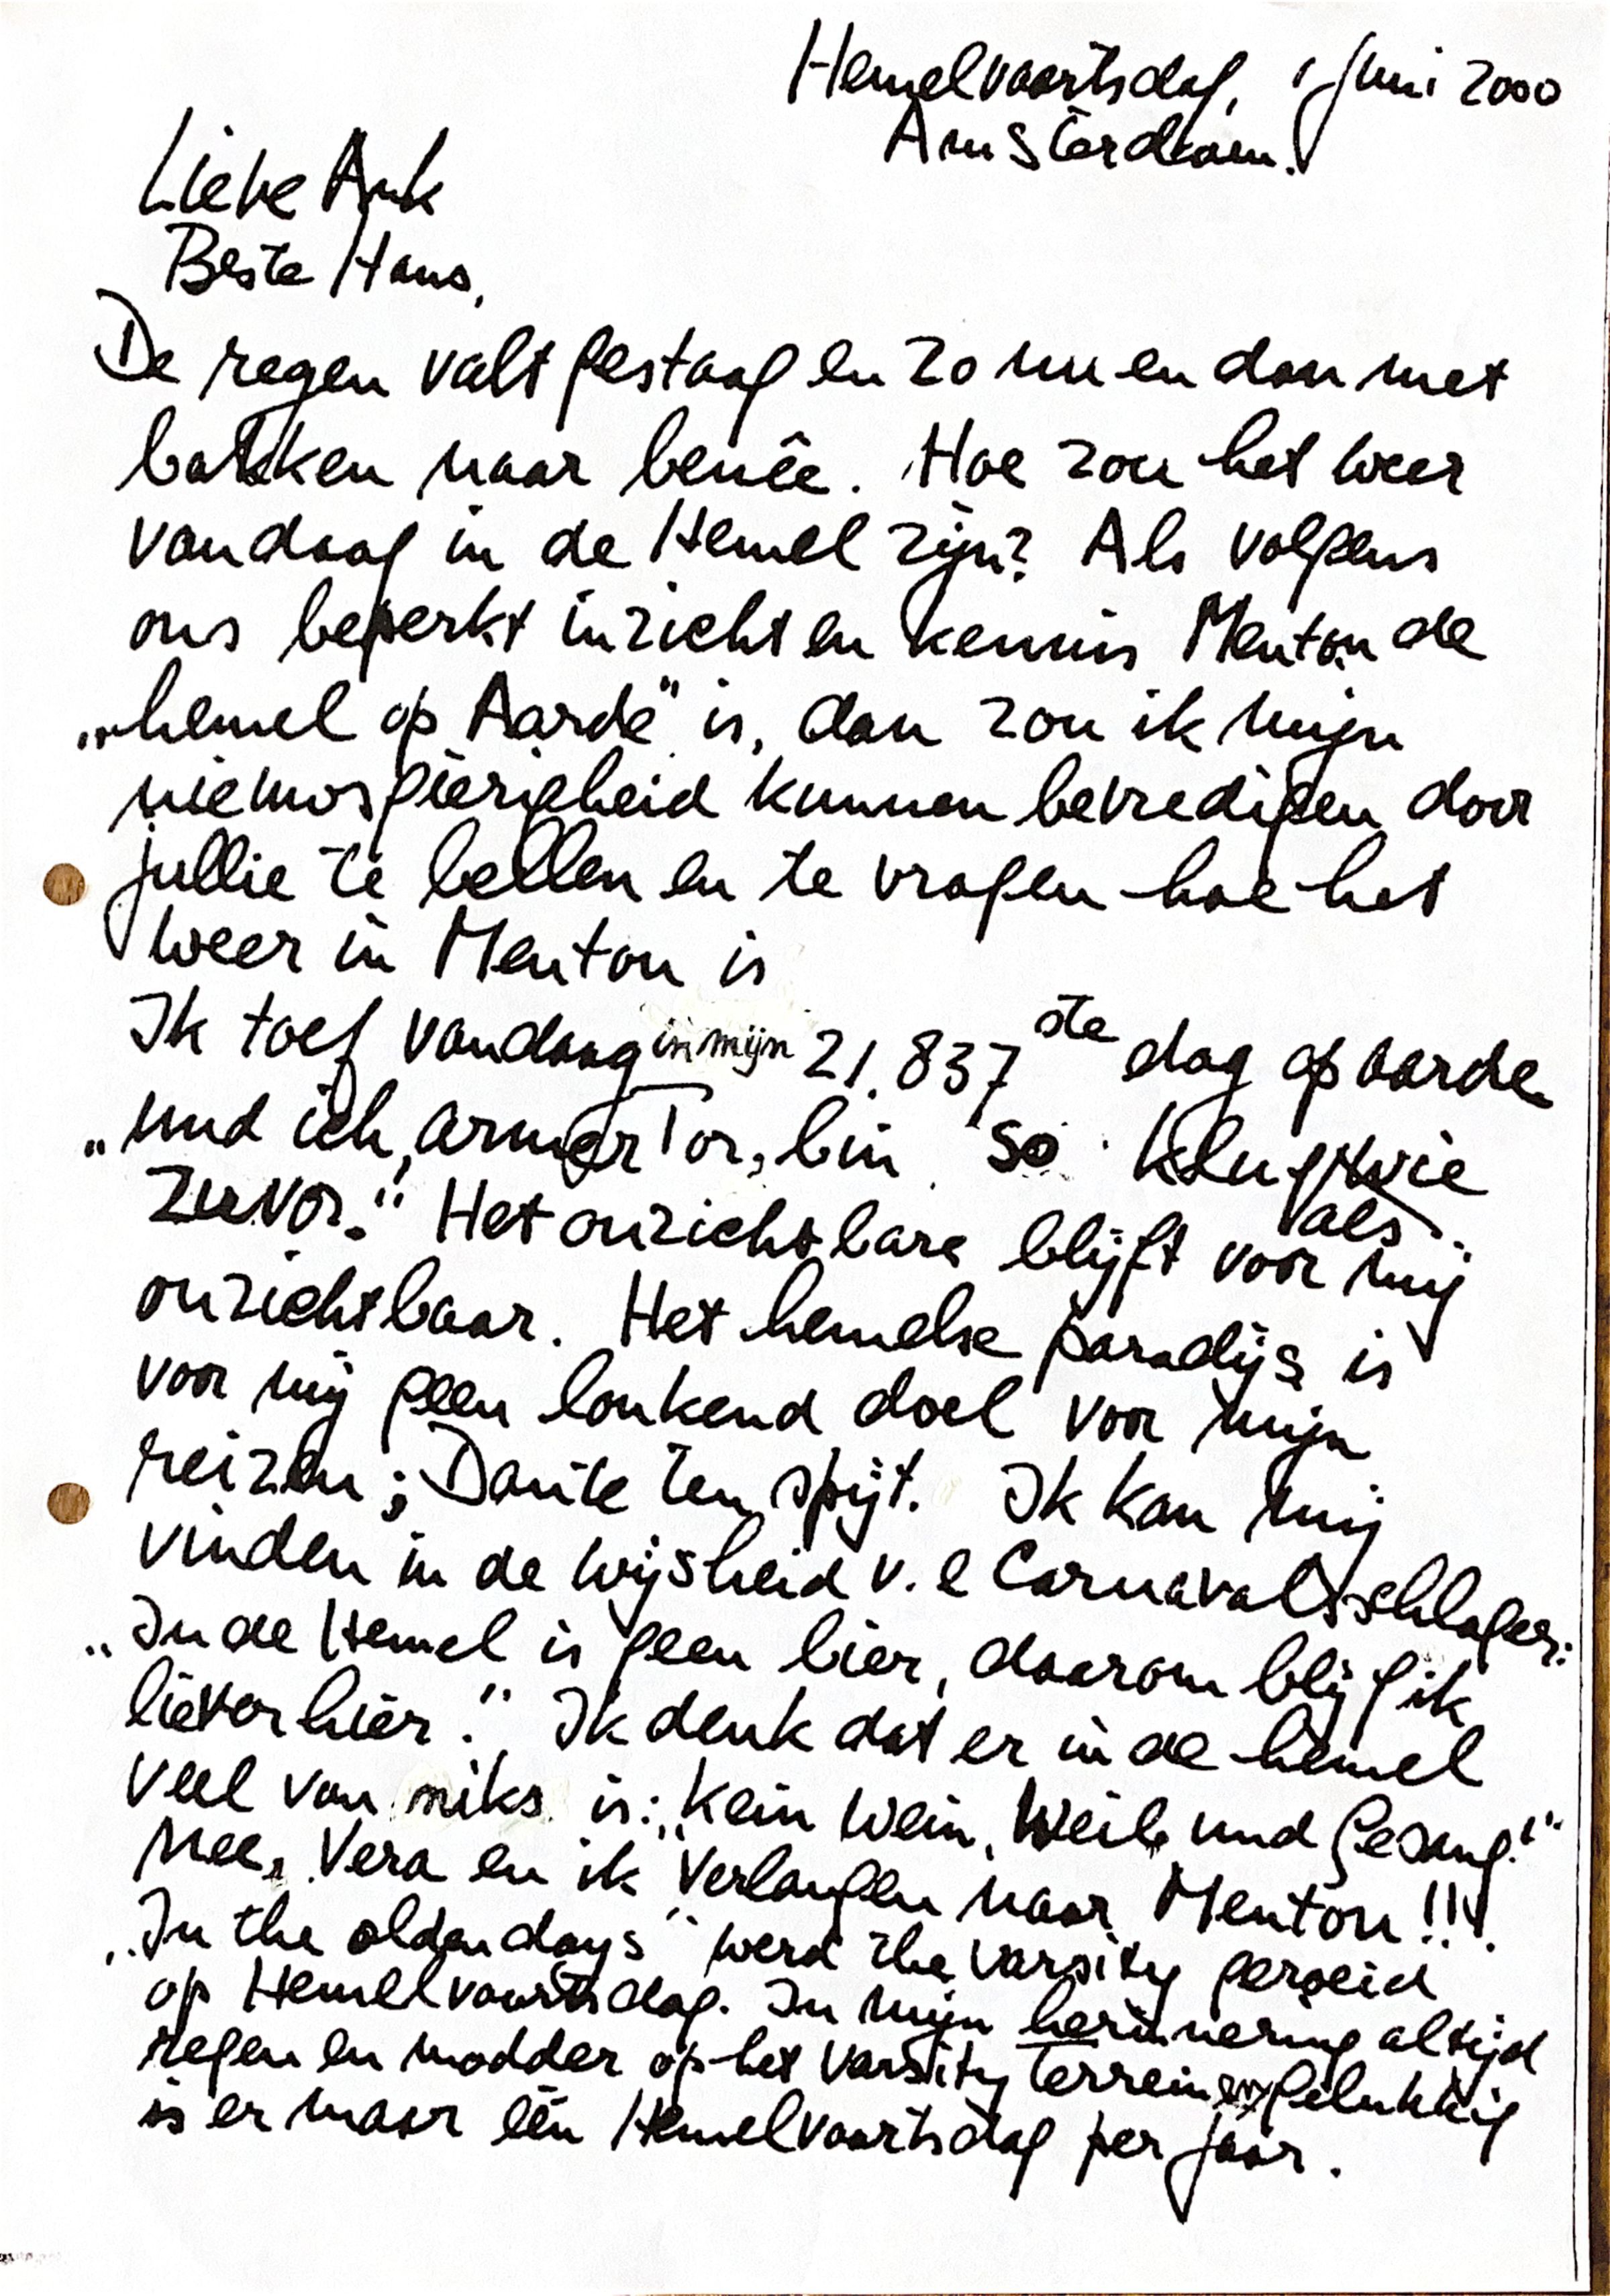 Hemelvaartsdag, 1 juni 2000
Amsterdam.
Lieve Ank
Beste Hans,
De regen valt gestaag en zo nu en dan met
bakken naar benêe. Hoe zou het weer
vandaag in de Hemel zijn? Als volgens
ons beperkt inzicht en kennis Menton de
„hemel op Aarde" is, dan zou ik mijn
nieuwsgierigheid kunnen bevredigen door
jullie te bellen en te vragen hoe het
weer in Menton is
Ik toef vandaag in mijn 21.837ste dag op aarde
„und ich, armer Tor, bin so klug wie
als
zuvor." Het onzichtbare blijft voor mij
onzichtbaar. Het hemelse paradijs is
voor mij geen lonkend doel voor mijn
reizen; Dante ten spijt. Ik kan mij
vinden in de wijsheid v.e Carnavalsschlager:
„In de Hemel is geen bier, daarom blijf ik
liever hier." Ik denk dat er in de hemel
veel van niks is: „Kein Wein, Weib und Gesang!"
Nee, Vera en ik verlangen naar Menton!!!
„In the olden days" werd the varsity geroeid
op Hemelvaartsdag. In mijn herinnering altijd
regen en modder op het varsity terrein en gelukkig
is er maar één Hemelvaartsdag per jaar.